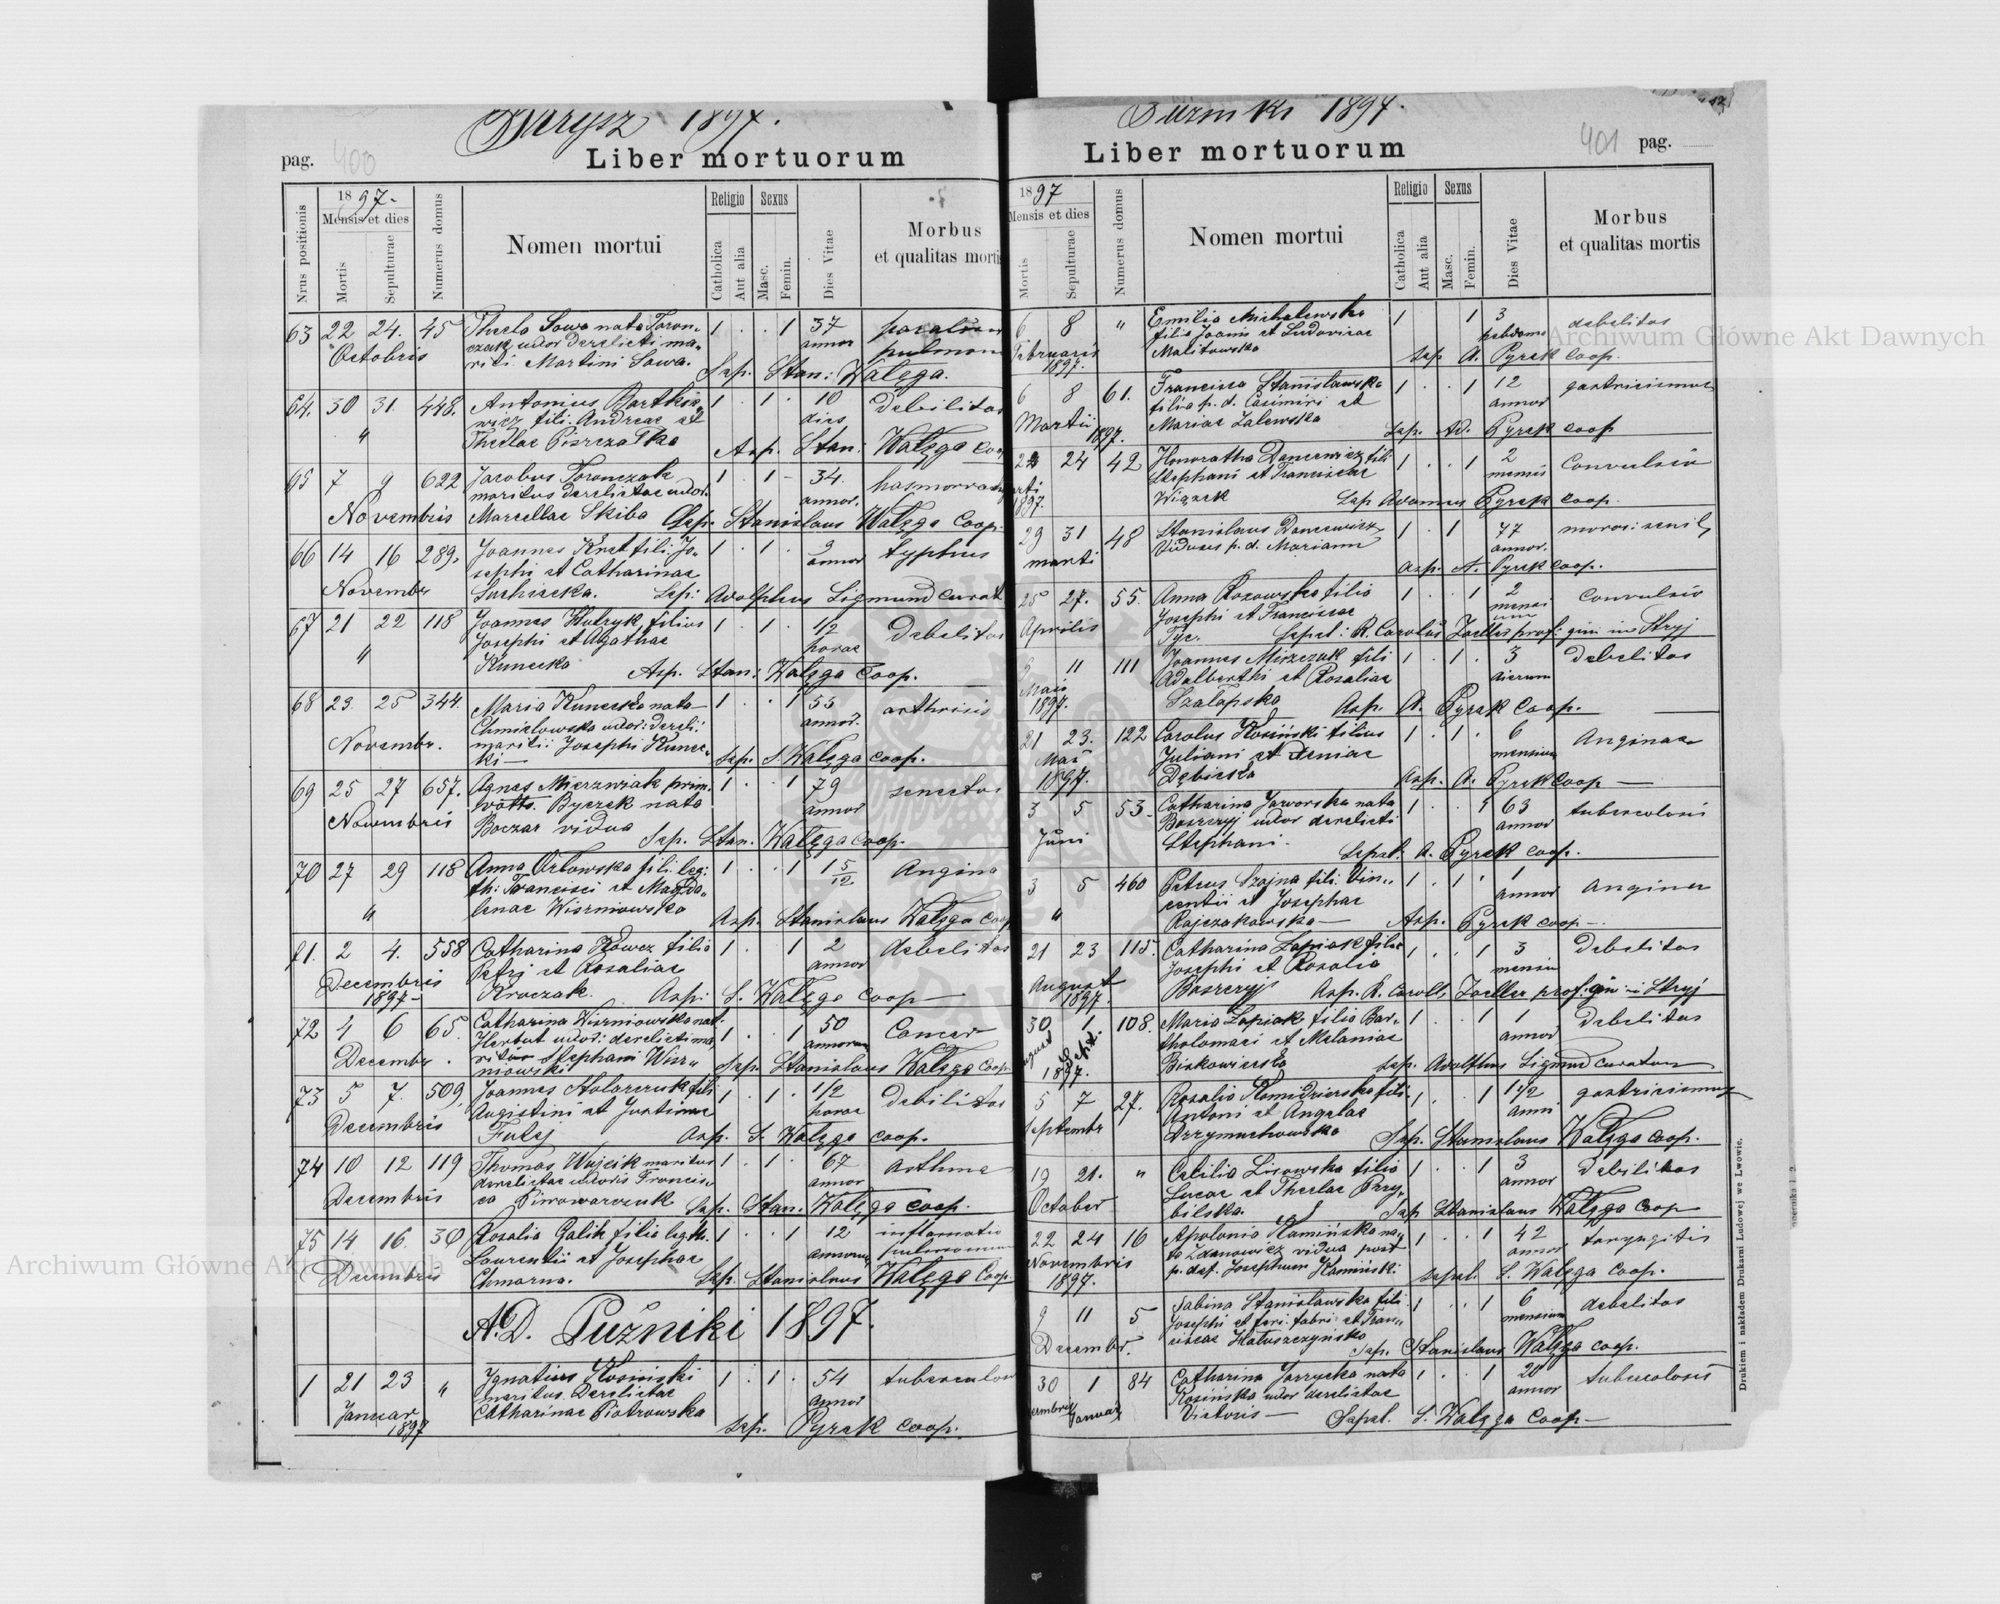 Barysz 1897.
pag. 400
Liber mortuorum
Nrus positionis
1897.
Mensis et dies
Mortis
Sepulturae
Numerus domus
Nomen mortui
Religio
Catholica
Aut alia
Sexus
Masc.
Femin.
Dies Vitae
Morbus
et qualitas mortis
63 22 24. 45 Thecla Sowa nata Toron- 1 . . 1 37
czak uxor derelicti ma- annor
Octobris riti Martini Sowa. Sep. Stan: Wałęga.
64. 30 31. 448. Antonius Bartkie- 1 . 1 . 10 Debilitas
wicz fili: Andreae et dies
" Theclae Pisrczatka Asp. Stan: Wałęga coop
65 7 9 622 Jacobus Toronczak 1 . 1 - 34.
maritus derelictae uxor. annor.
Novembris Marcellae Skiba Asp. Stanislaus Wałęga Coop.
66 14 16 289. Joannes Knet fili: Jo- 1 . 1 . 9 typhus
sephi et Catharinae annor
Novembr Suchiecka. Sep: Adolphus Sigmund curat
67 21 22 118 Joannes Hutryk filius 1 . 1 . 1/2 Debilitas
Josephi et Agathae horae
" Kunecka Asp. Stan: Wałęga Coop.
68 23. 25 344. Maria Kunecka nata 1 . . 1 55 arthrisis
Chmielowska uxor: dereli: annor.
Novembr. mariti: Josephi Kunec-
ki Sep. S. Wałęga coop.
69 25 27 657. Agnes Mierzwiak prim. 1 . . 1 79 senectus
votto. Byczek nata annor
Novembris Boczar vidua Sep. Stan. Wałęga coop.
70 27 29 118 Anna Orłowska fili: leg: 1 . . 1 1 5/12 Angina
th: Francisci et Magda-
" lenae Wiszniowska Asp. Stanislaus Wałęga Coop
71. 2 4. 558 Catharina Kowcz filia 1 . . 1 2 debelitas
Petri et Rosaliae annor
Decembris
1897 Kroczak. Asp: S. Wałęga coop
72 4 6 65. Catharina Wiszniowska nat. 1 . . 1 50 Cancer
Herbut uxor: derelicti ma- annorum
Decembr. riti Stephani Wisz-
niowski Sep. Stanislaus Wałęga Coop.
73 5 7. 509. Joannes Stolarczuk fili 1 . 1 . 1/2 Debilitas
Augistini et Justinae horae
Decembris Futej Asp. S. Wałęga coop.
74 10 12 119 Thomas Wujcik maritus 1 . 1 . 67 Asthma
derelictae uxoris Francis- annor
Decembris ca Piwowarczuk Sep. Stan. Wałęga coop.
75 14 16. 30 Rosalia Galik filia legth. 1 . . 1 12 inflamatio
Laurentii et Josephae annorum pulmonum
Decembris Chmarna. Sep. Stanislaus Wałęga Coop.
A.D. Pużniki 1897.
1 21 23 " Ignatius Kosiński 1 . 1 . 54 tuberculos
maritus derelictae annor
Januar
1897 Catharinae Piotrowska Sep. Pyrek coop.
Pużniki 1897.
401 pag.
Liber mortuorum
1897
Mensis et dies
Mortis
Sepulturae
Numerus domus
Nomen mortui
Religio
Catholica
Aut alia
Sexus
Masc.
Femin.
Dies Vitae
Morbus
et qualitas mortis
6 8 " Emilia Michalewska 1 1 3 debelitas
filia Joanis et Ludovicae hebdom
Februaris
1897. Malitowska Sep A. Pyrek Coop.
6 8 61. Francisca Stanisławska 1 . . 1 12 gastricismus
filia p. d. Casimiri et annor
Martii
1897. Mariae Zalewska Sep. Ad. Pyrek coop
22 24 42 Honoratha Dancewicz fili 1 . . 1 2 Convulsio
Stephani et Franciscae mensis
1897. Wiązek Sep Adamus Pyrek coop.
29 31 48 Stanislaus Dancewicz 1 . 1 77 moros: senil
Viduus p. d. Mariann annor.
marti Asp. A. Pyrek coop.
25 27. 55. Anna Rozowska filia 1 . . 1 2 Convulsio
Josephi et Franciscae mensi
Aprilis Tyc. Sepel: R. Carolus Zoeller prof: gim: in Stryj
11 111 Joannes Miszczak fili 1 . 1 . 3 Debelitas
Adalberthi et Rosaliae dierum
Maii
1897. Szałapska Asp. A. Pyrek Coop.
21 23. 122 Carolus Kosiński filius 1 . 1 . 6 Anginae
Juliani et Xeniae mensium
Mai
1897. Dębicka Asp. A. Pyrek coop
3 5 53. Catharina Jaworska nata 1 . . 1 63 tuberculosis
Baszczyj uxor derelicti annor
Juni Stephani. Sepel. A. Pyrek coop.
3 5 460 Petrus Szajna fili: Vin- 1 . 1 . 1 Anginae
centii et Josephae annor
" Rajczakowska Asp. Pyrek coop
21 23 115. Catharina Łapiak filia 1 . . 1 3 Debelitas
Josephi et Rosalia mensiu
August
1897. Baszczyj Asp. R. Caroll. Zoeller prof. gim in Stryj
30 1 108. Maria Łapiak filia Bar- 1 . . 1 1 debelitas
tholomaei et Melaniae annor
August Sept.
1897. Biskowicska Sep. Adolfus Sigmund curatum
5 7 27. Rosalia Komidzierska fili 1 . . 1 1 1/2 gastricismus
Antoni et Angelae anni
Septembr Sep. Stanislaus Wałęga coop.
19 21. " Cecilia Lisowska filia 1 . . 1 3 Debilitas
Lucae et Theclae Przy- annor
October bilska. Sep Stanislaus Wałęga Coop
22 24 16 Apolonia Kamińska na- 1 . . 1 42 laryngitis
ta Zdanowicz vidua post annor
Novembris
1897. p. def. Josephum Kamiński Sepel. S. Wałęga Coop.
9 11 5 Sabina Stanisławska fili 1 . . 1 6 debelitas
Josephi et feri: fabri et Fran- mensium
Decembr. ciscae Hałuszczyńska Sep. Stanislaus Wałęga coop.
30 1 84 Catharina Jarzycka nata 1 . . 1 20 tuberculosis
Kosińska uxor derelictae annor
Januar Victoris Sepel. S. Wałęga Coop
Drukiem i nakładem Drukarni Ludowej we Lwowie.
Archiwum Główne Akt Dawnych
Archiwum Główne Akt Dawnych